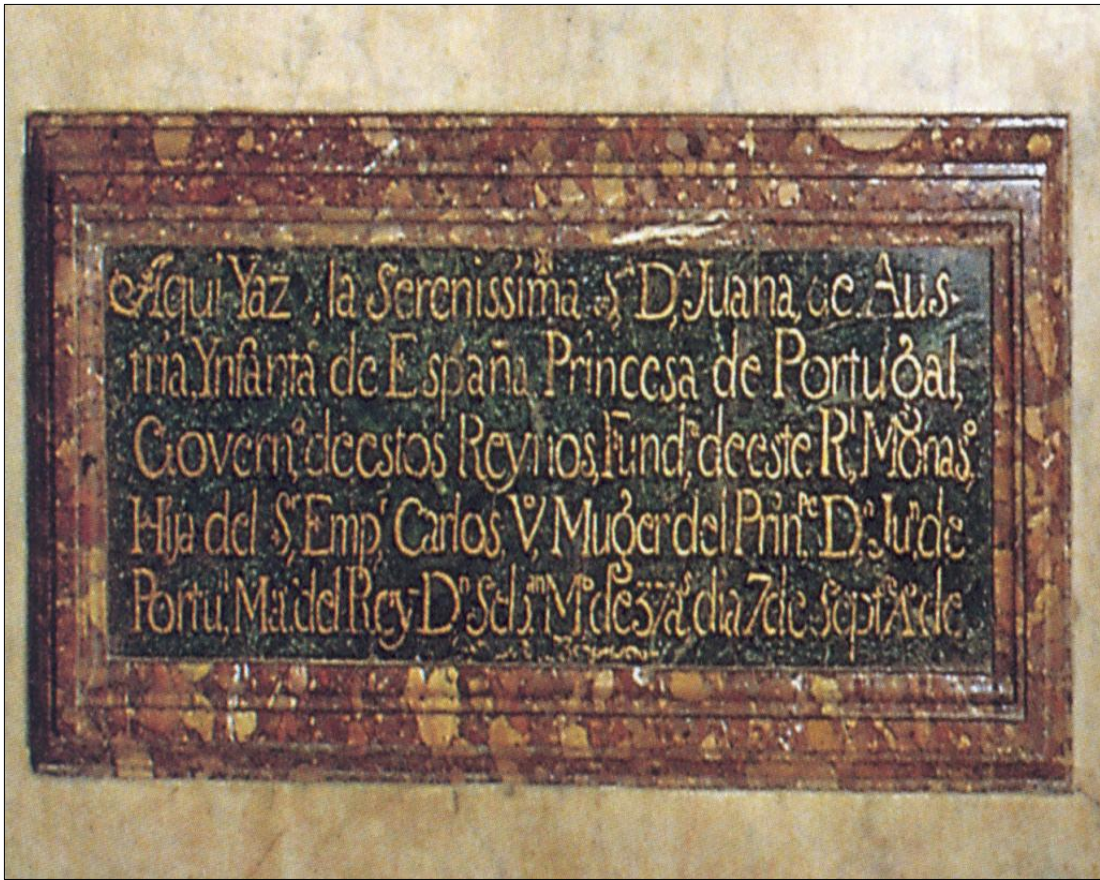 Aqui Yaz, la Serenissima Sª Dª Juana, de Aus-
tria, Ynfanta de España, Princesa de Portugal,
Governª de estos Reynos, Fundª de este Rl Monasº,
Hija del Sr Empr Carlos, Vº, Muger del Prinpe Dn Jun de
Portul, Me del Rey Dn Seban Mº de 37 as dia 7 de Septre Aº de